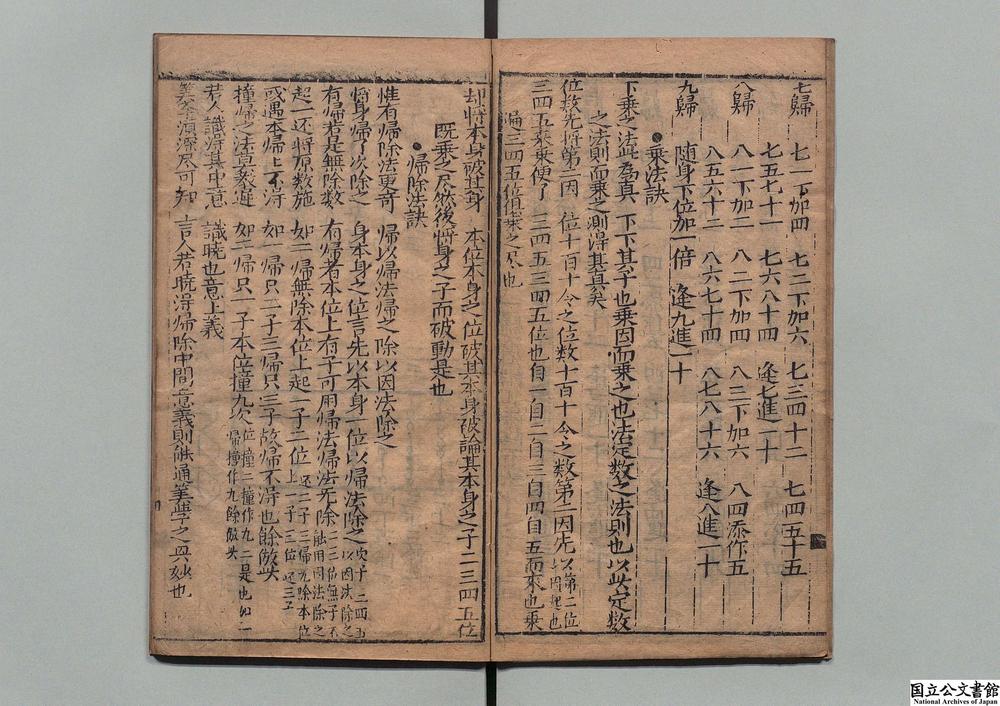 七歸 七一下加四 七二下加六 七三四十二 七四五十五
七五七十一 七六八十四 逢七進一十
八歸 八一下加二 八二下加四 八三下加六 八四添作五
八五六十二 八六七十四 八七八十六 逢八進一十
九歸 随身下位加一倍 逢九進一十
乘法訣
下乘之法此為真 下下其子也乘因而乘之也法定数之法則也以此定数
之法則而乘之測得其真矣
位数先將第二因 位十百十令之位数十百十令之数第二因先以第二位
三四五乘乘便了 三四五三四五位也自一自二自三自四自五而來也乘
遍三四五位俱乘之尽也
却將本身破其身 本位本身之位破其本身破論其本身之子二三四五位
既乘之尽然後將身之子而破動是也
歸除法訣
惟有歸除法更奇 歸以歸法歸之除以因法除之
將身歸了次除之 身本身之位言先以本身一位以歸法除之
有歸若是無除数 有歸者本位上有子可用歸法歸法无除
起一还將原数施 如二歸無除本位上起一子二位
或遇本歸上不得 如一歸只一子二子三歸只三子故歸不得也餘倣此
撞歸之法莫教遲 如二歸只一子本位撞九次
若人識得其中意 識曉也意上義
筭學須深尽可知 言人若曉得歸除中間意義則能通筭學之奥妙也
国立公文書館
National Archives of Japan